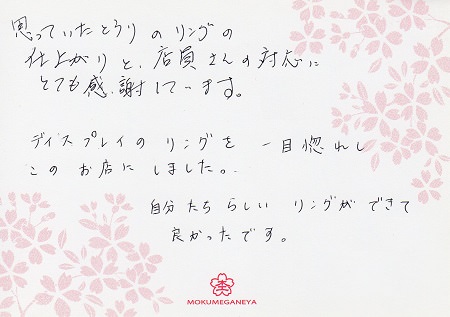 思っていたとうりのリングの
仕上がりと、店員さんの対応に
とても感謝しています。
ディスプレイのリングを一目惚れし
このお店にしました。
自分たちらしいリングができて
良かったです。
MOKUMEGANEYA